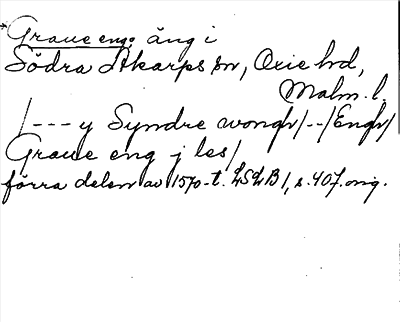 *Graue eng: äng i
Södra Åkarps sn, Oxie hd,
Malm. l
/--- y Syndre wongh/--/Engh/
Graue eng j les/
förra delen av 1570-t. LSLB 1, s. 407. orig.